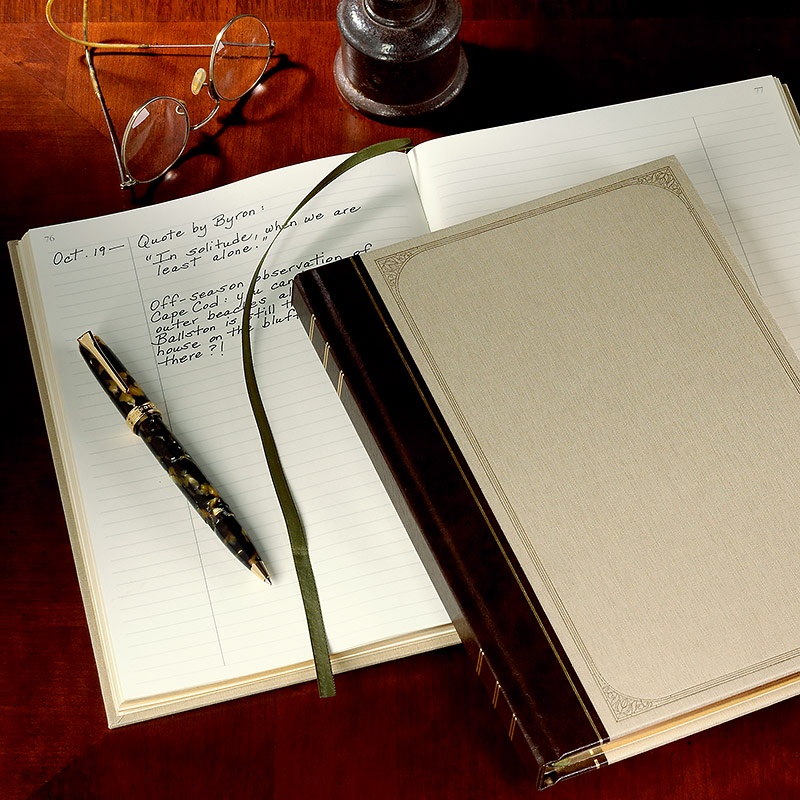 76
77
Oct. 19— Quote by Byron:
"In solitude, when we are
least alone."
Off-season observation of
Cape Cod: you can
outer beaches
Ballston is still
house on the bluff
there?!